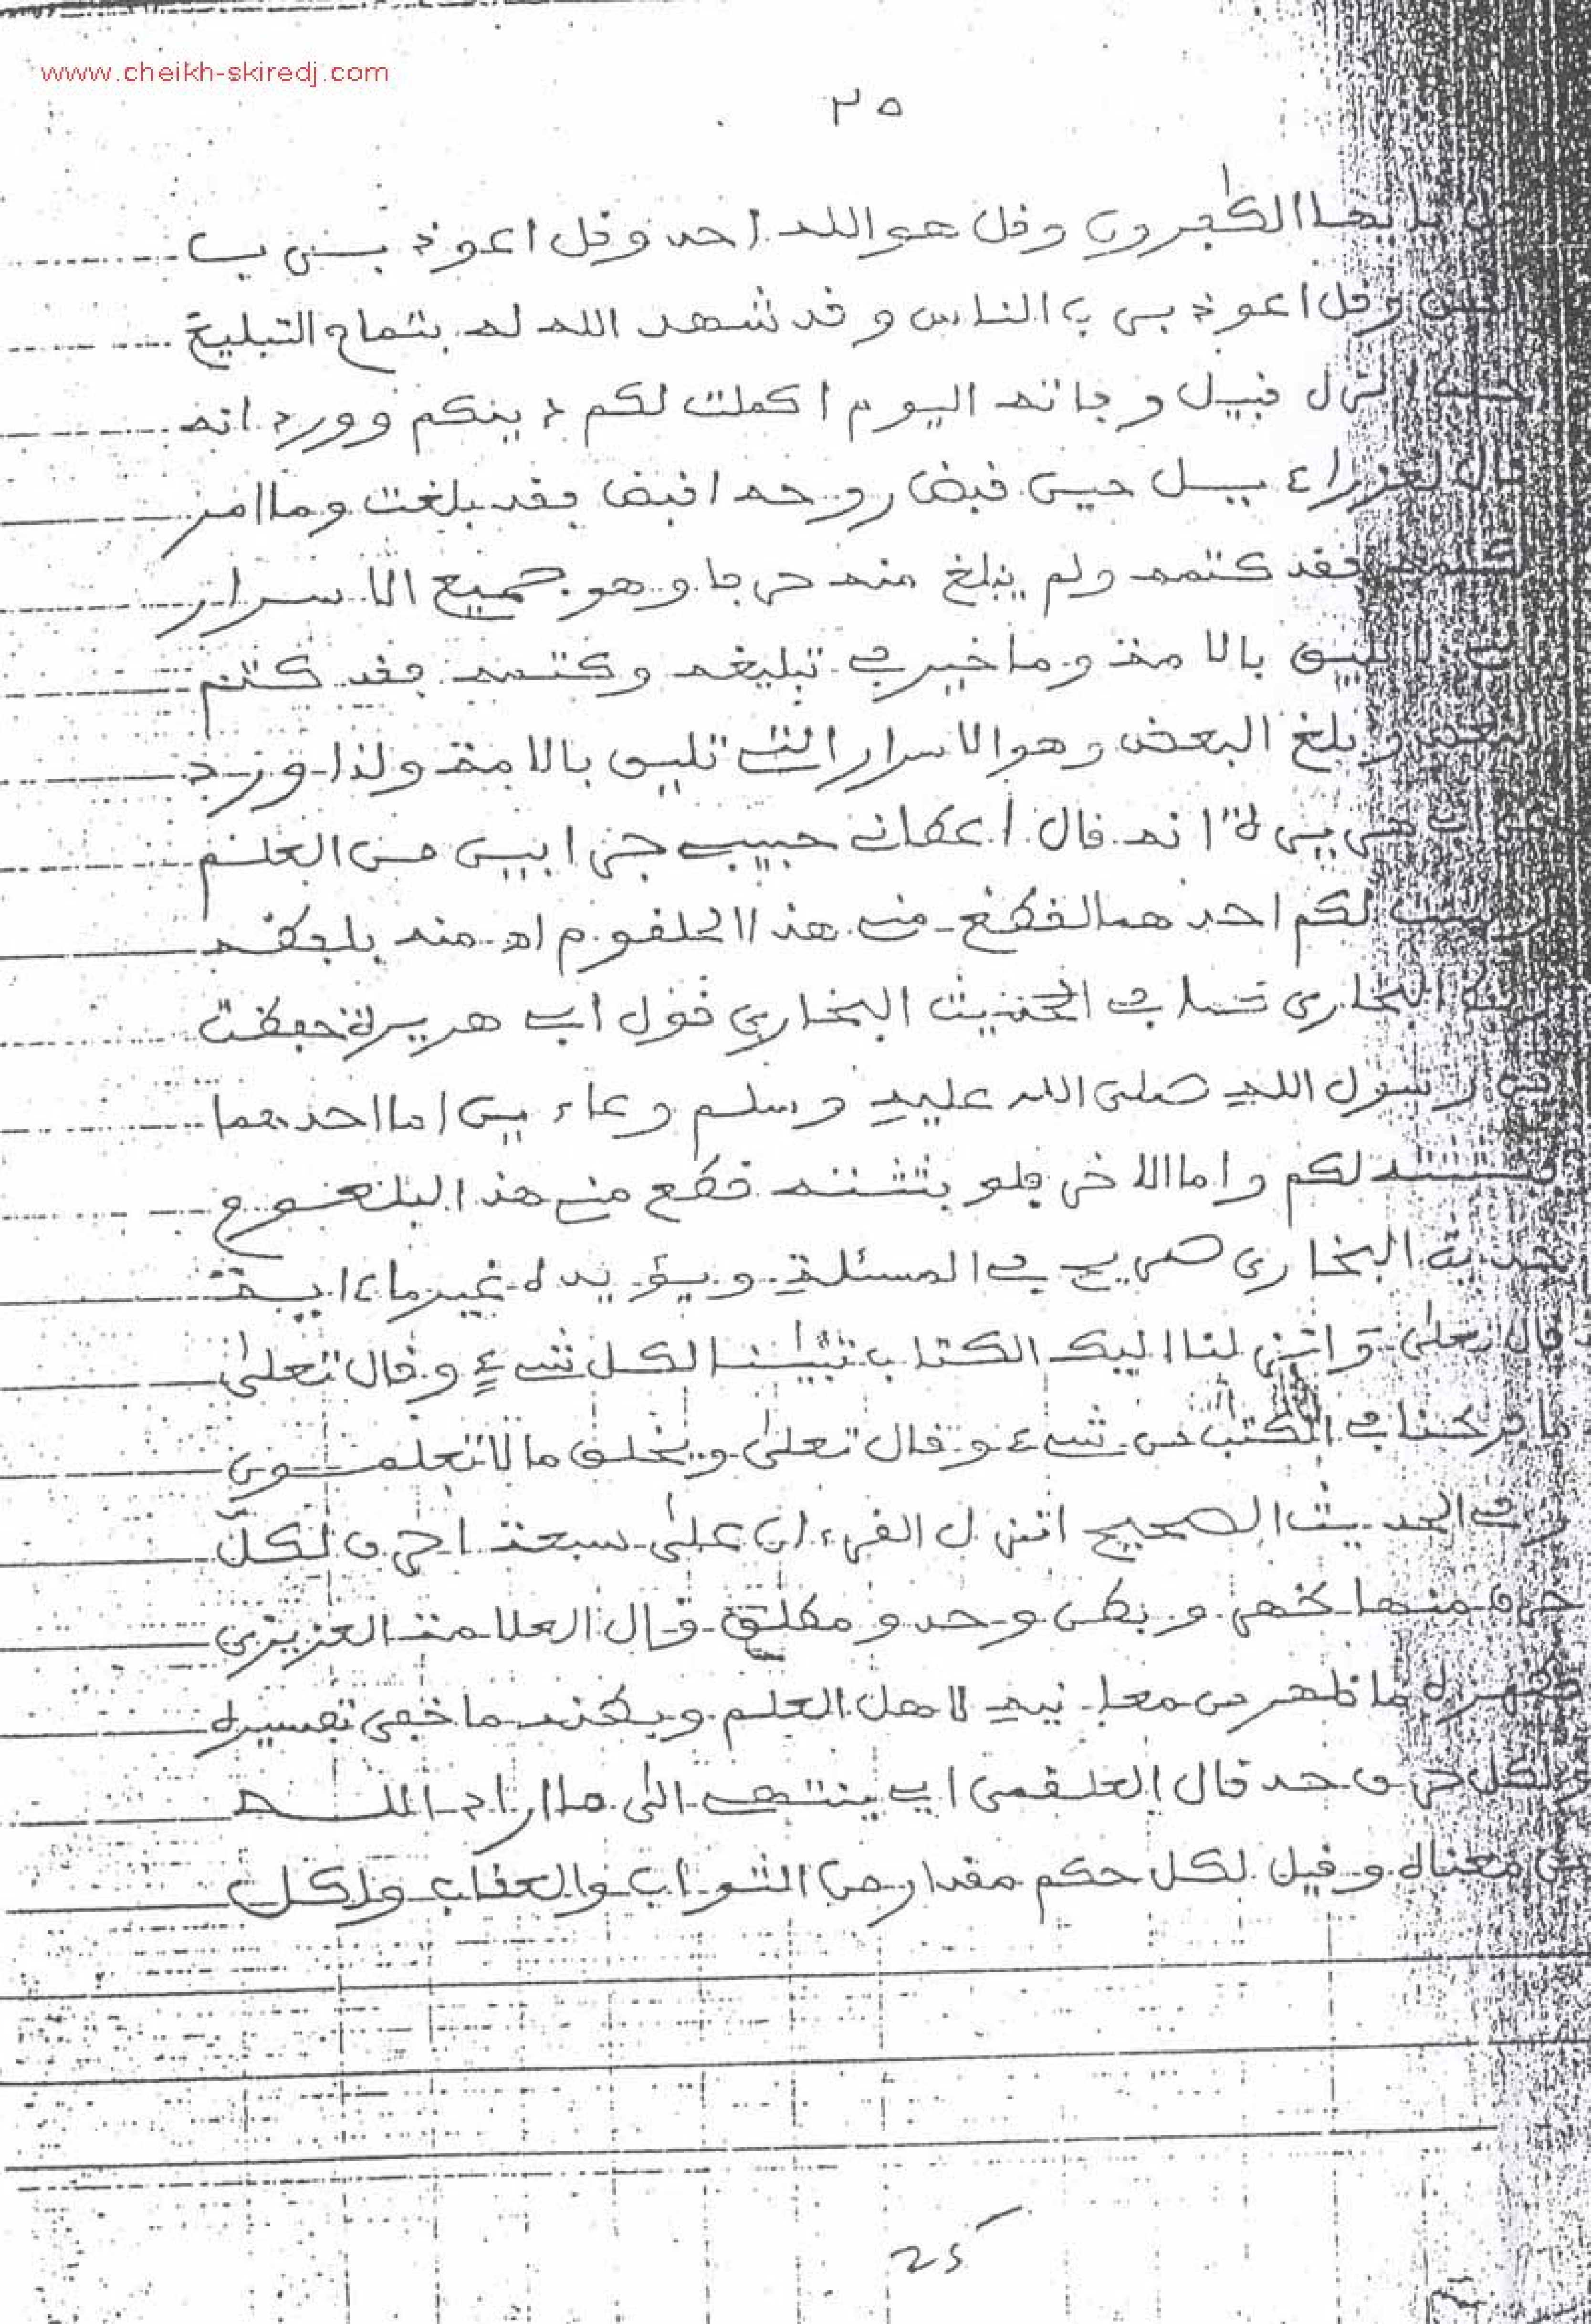 www.cheikh-skiredj.com
٢٥
يأيها الكٰفرون وقل هو الله احد وقل اعوذ برب
وقل اعوذ برب الناس وقد شهد الله له بتمام التبليغ
انزل قبيل وفاته اليوم اكملت لكم دينكم وورد انه
قال لعزراءيل حين قبض روحه اقبض فقد بلغت وما امر
بكتمه فقد كتمه ولم يبلغ منه حرفا وهو جميع الاسرار
لا تليق بالامة وما خير في تبليغه وكتمه فقد كتم
البعض وبلغ البعض وهو الاسرار التي تليق بالامة ولذا ورد
عن ابي هريرة انه قال اعطاني حبيبي جرابين من العلم
لكم احدهما لقطع مني هذا الحلقوم اه منه بلفظه
البخاري في الحديث البخاري قول ابي هريرة حفظت
من رسول الله صلى الله عليه وسلم وعاءين اما احدهما
فبثثته لكم واما الاخر فلو بثثته قطع مني هذا البلعوم
البخاري صريح في المسئلة ويؤيده غير ما ءاية
قال تعلى وانزلنا اليك الكتاب تبيٰنا لكل شيءٍ وقال تعلىٰ
ما فرطنا في الكتٰب من شيء وقال تعلىٰ ويخلق ما لا تعلمون
وفي الحديث الصحيح انزل القرءان علىٰ سبعة احرف لكلّ
حرف منها ظهر وبطن وحد ومطلع قال العلامة العزيزي
ظهره ما ظهر من معانيه لاهل العلم وبطنه ما خفي تفسيره
ولكل حرف حد قال العلقمي اي ينتهي الى ما اراد الله
من معناه وقيل لكل حكم مقدار من الثواب والعقاب ولكل
25